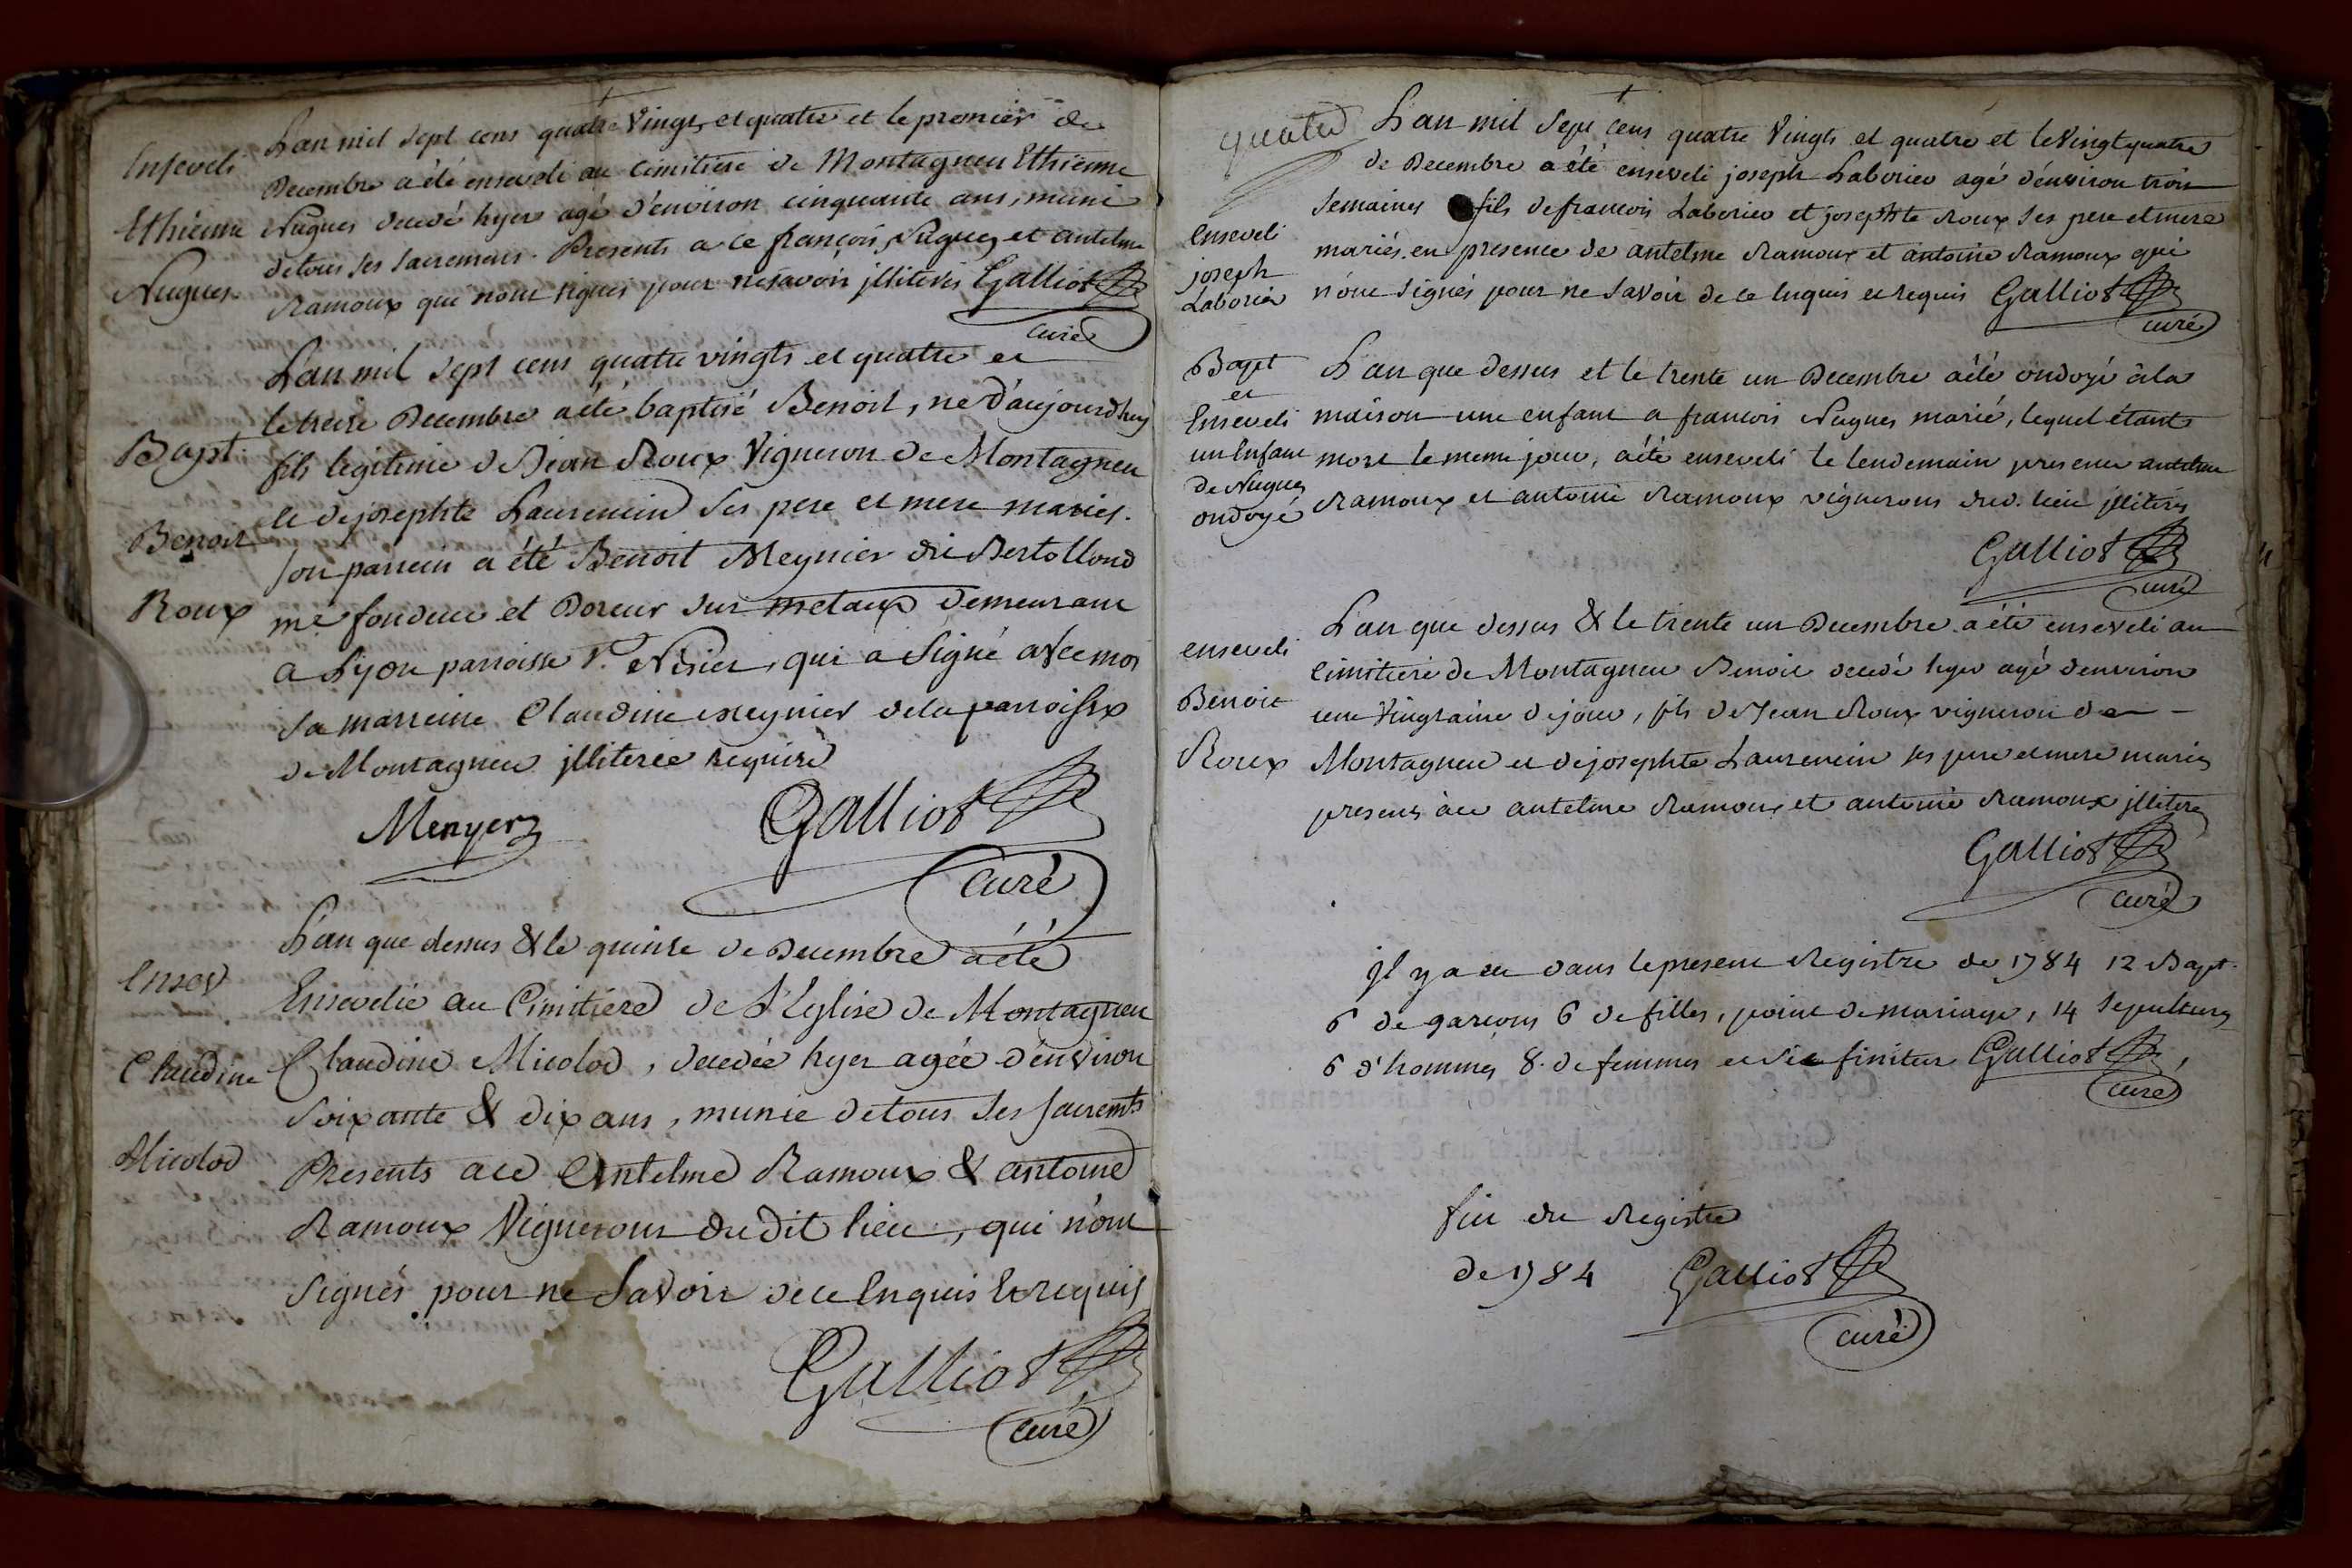 Enseveli
Ethienne
Nugues
Lan mil sept cens quatre Vingts et quatre et le premier de
Decembre a été enseveli au cimitiere de Montagneu Ethienne
Nugues decedé hyer agé d'environ cinquante ans, muni
de tous ses sacremens. Presents a ce françois Nugues et antelme
Ramoux qui n'ont signés pour ne savoir jlliterés Galliot
curé
Bapt.
Benoit
Roux
Lan mil sept cens quatre vingts et quatre et
le treize Decembre a été baptisé Benoit, ne d'aujourdhuy
fils legitime de Jean Roux Vigneron de Montagneu
et de josephte Laurencin ses pere et mere mariés.
son parrein a été Benoit Meynier dit Bertollond
me fondeur et Doreur sur metaux demeurant
a Lyon parroisse St. Nisier, qui a signé avec moi
sa marreine Claudine Meynier de la parroisse
de Montagneu jlliterée requise
Menyer Galliot
curé
Ensev
Claudine
Micolod
L'an que dessus & le quinse de Decembre a été
Ensevelie au Cimitiere de L'Eglise de Montagneu
Claudine Micolod, decedée hyer agée d'environ
soixante & dix ans, munie de tous ses sacremts
Presents a ce Antelme Ramoux & antoine
Ramoux Vignerons du dit lieu, qui n'ont
signés pour ne savoir de ce Enquis & requis
Galliot
curé
quatre
enseveli
joseph
Laborier
L'an mil sept cens quatre Vingts et quatre et le Vingt quatre
de Decembre a été enseveli joseph Laborier agé d'environ trois
semaines fils de francois Laborier et josephte Roux ses pere et mere
mariés. en presence de antelme Ramoux et antoine Ramoux qui
n'ont signés pour ne savoir de ce Enquis et requis Galliot
curé
Bapt
et
Enseveli
un Enfant
de Nugues
ondoyé
L'an que dessus et le trente un Decembre a été ondoyé à la
maison une enfant a francois Nugues marié, lequel étant
mort le meme jour, a été enseveli le lendemain presence antelme
Ramoux et antoine Ramoux vignerons dud. lieu jlliterés
Galliot
curé
enseveli
Benoit
Roux
L'an que dessus & le trente un Decembre a été enseveli au
cimitiere de Montagneu Benoit decedé hyer agé d'environ
une Vingtaine de jour, fils de Jean Roux vigneron de
Montagneu et de josephte Laurencin ses pere et mere mariés
presens à ce antelme Ramoux et antoine Ramoux jlliterés
Galliot
curé
Jl y a eu dans le present Registre de 1784 12 Bapt.
6 de garcons 6 de filles, point de mariage, 14 sepultures
6 d'hommes 8. de femmes et sic finitur Galliot
curé
fin du Registre
de 1784 Galliot
curé